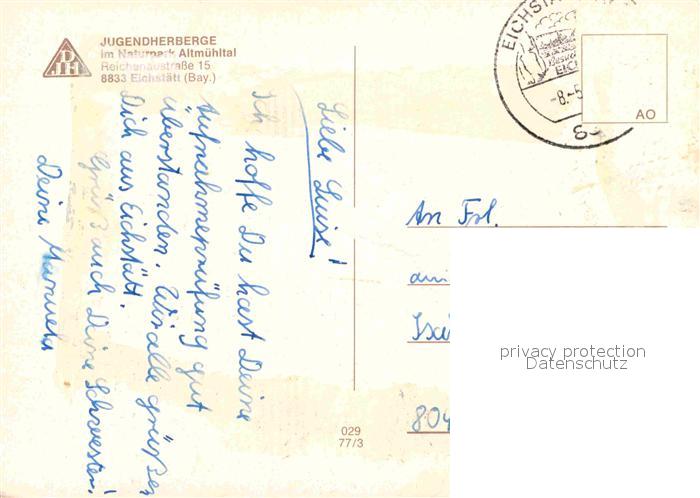 JUGENDHERBERGE
im Naturpark Altmühltal
Reichenaustraße 15
8833 Eichstätt (Bay.)
DJH
Liebe Luise!
Ich hoffe Du hast Deine
Aufnahmeprüfung gut
überstanden. Wir alle grüßen
Dich aus Eichstätt.
Grüß auch Deine Schwester!
Deine Manuela
EICHSTÄ
EIC
-8.-5
8
AO
An Frl.
804
privacy protection
Datenschutz
029
77/3